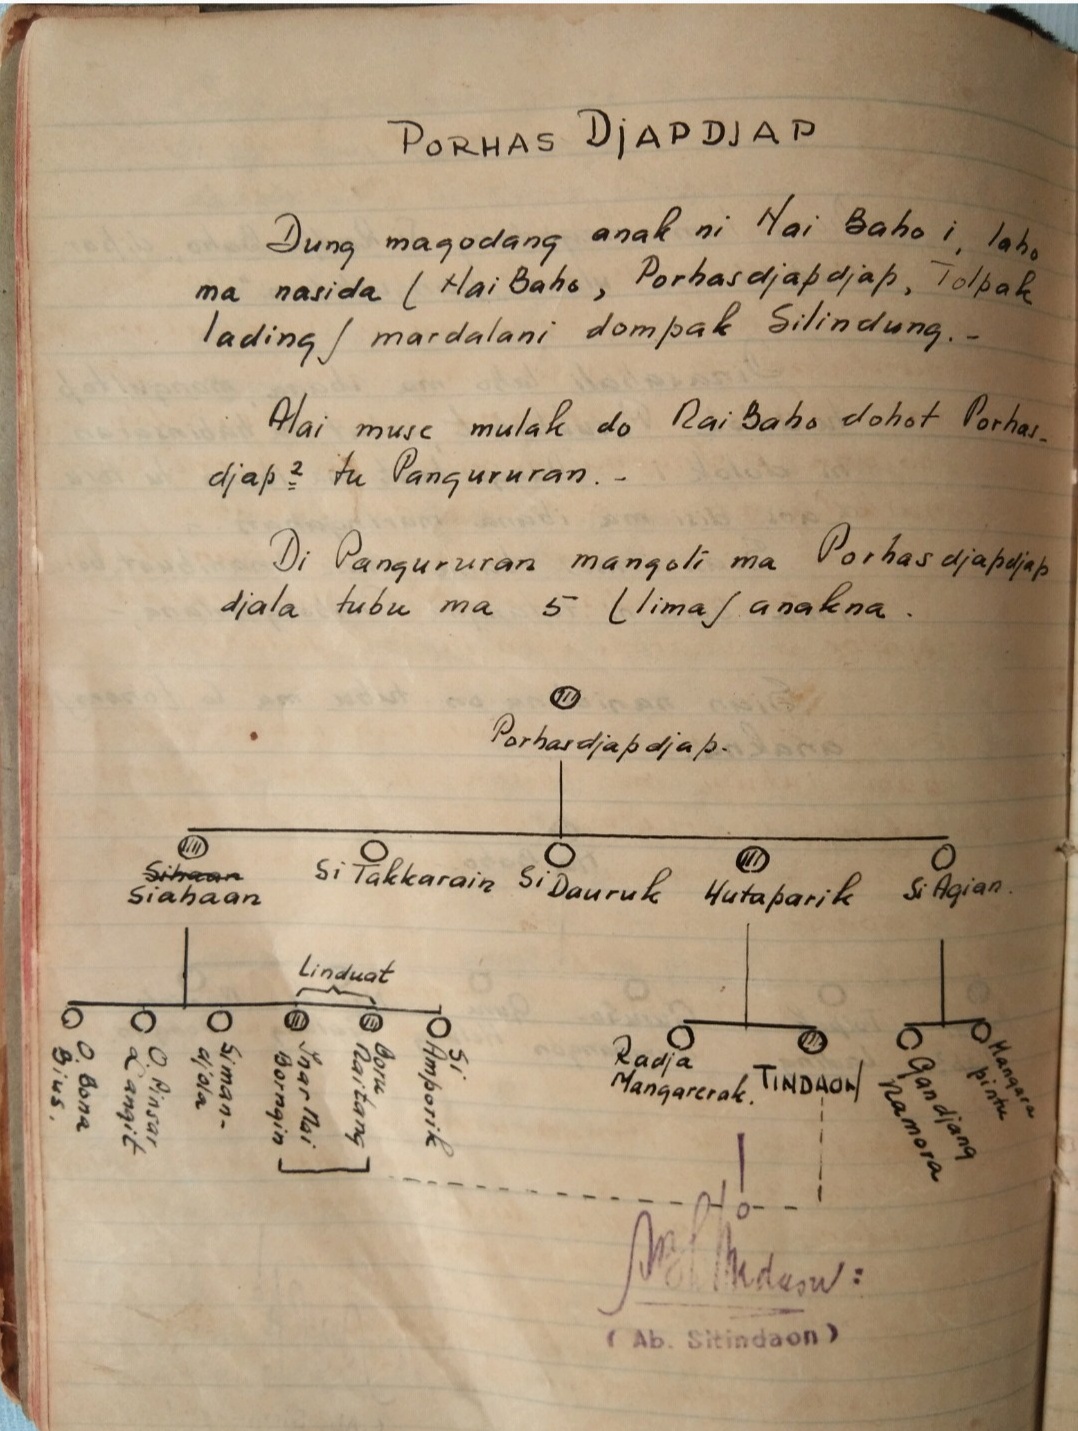 PORHAS DJAPDJAP
Dung magodang anak ni Nai Baho i, laho
ma nasida ( Nai Baho, Porhasdjapdjap, Tolpak
lading ) mardalani dompak Silindung. -
Alai muse mulak do Nai Baho dohot Porhas-
djap² tu Pangururan. -
Di Pangururan mangoli ma Porhasdjapdjap
djala tubu ma 5 ( lima ) anakna .
Porhasdjapdjap.
Sihaan
Siahaan
Si Takkarain
Si Dauruk
Hutaparik
Si Agian.
Linduat
O. Bona
Bius.
O. Pinsar
Langit
Siman-
djala
Inar Nai
Borngin
Boru
Naitang
Si
Amborik
Radja
Mangarerak.
TINDAON
Gandjang
Namora
Mangara
pintu
( Ab. Sitindaon )